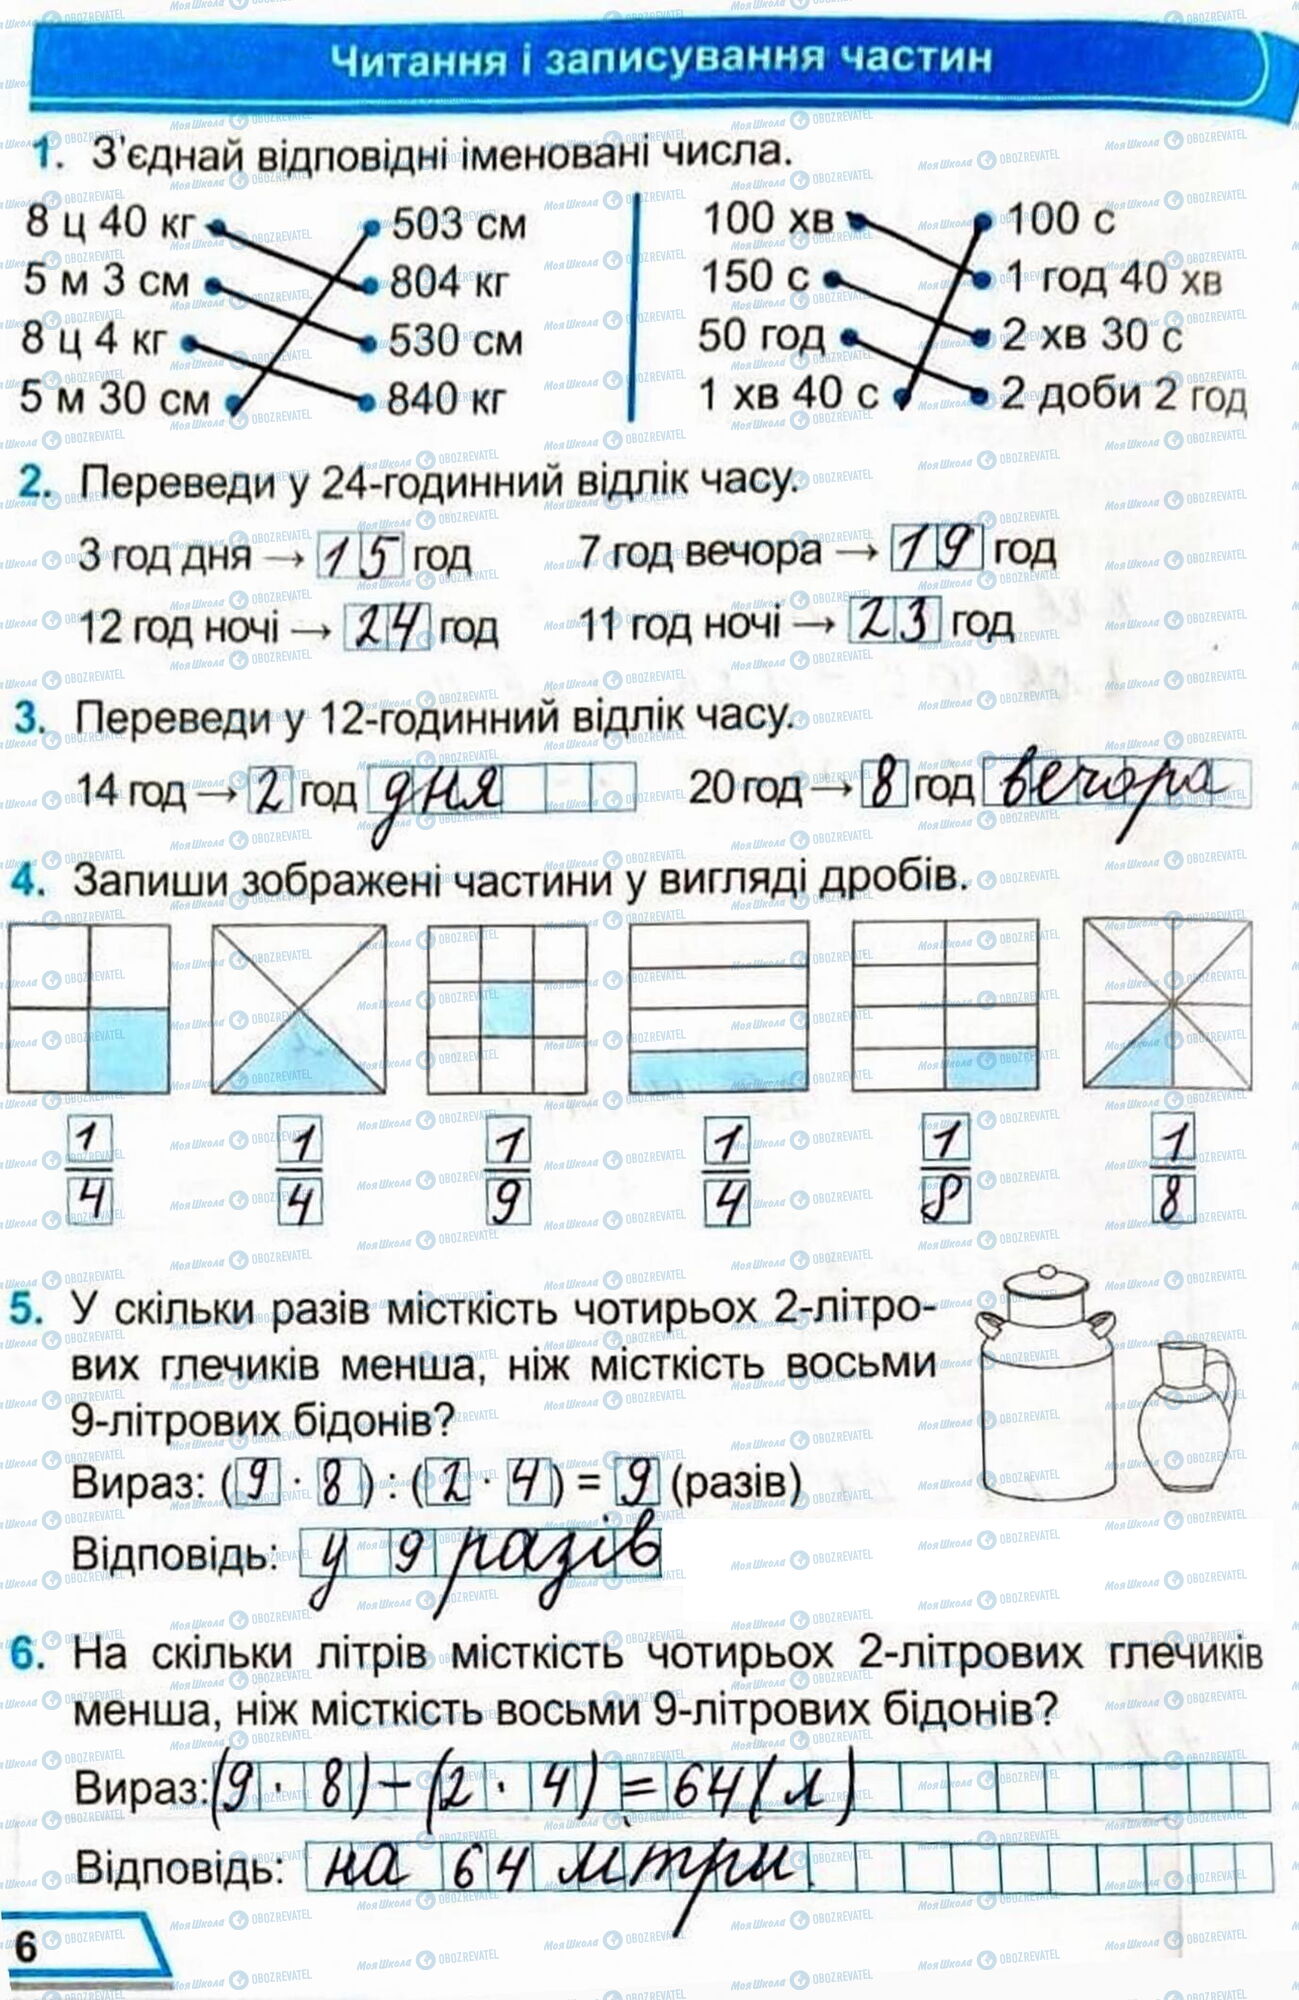 Читання і записування частин
1. З'єднай відповідні іменовані числа.
8 ц 40 кг 503 см 100 хв 100 с
5 м 3 см 804 кг 150 с 1 год 40 хв
8 ц 4 кг 530 см 50 год 2 хв 30 с
5 м 30 см 840 кг 1 хв 40 с 2 доби 2 год
2. Переведи у 24-годинний відлік часу.
3 год дня → 15 год 7 год вечора → 19 год
12 год ночі → 24 год 11 год ночі → 23 год
3. Переведи у 12-годинний відлік часу.
14 год → 2 год дня 20 год → 8 год вечора
4. Запиши зображені частини у вигляді дробів.
1 1 1 1 1 1
4 4 9 4 8 8
5. У скільки разів місткість чотирьох 2-літро-
вих глечиків менша, ніж місткість восьми
9-літрових бідонів?
Вираз: (9 · 8) : (2 · 4) = 9 (разів)
Відповідь: у 9 разів
6. На скільки літрів місткість чотирьох 2-літрових глечиків
менша, ніж місткість восьми 9-літрових бідонів?
Вираз: (9 · 8) - (2 · 4) = 64 (л)
Відповідь: на 64 літри.
6